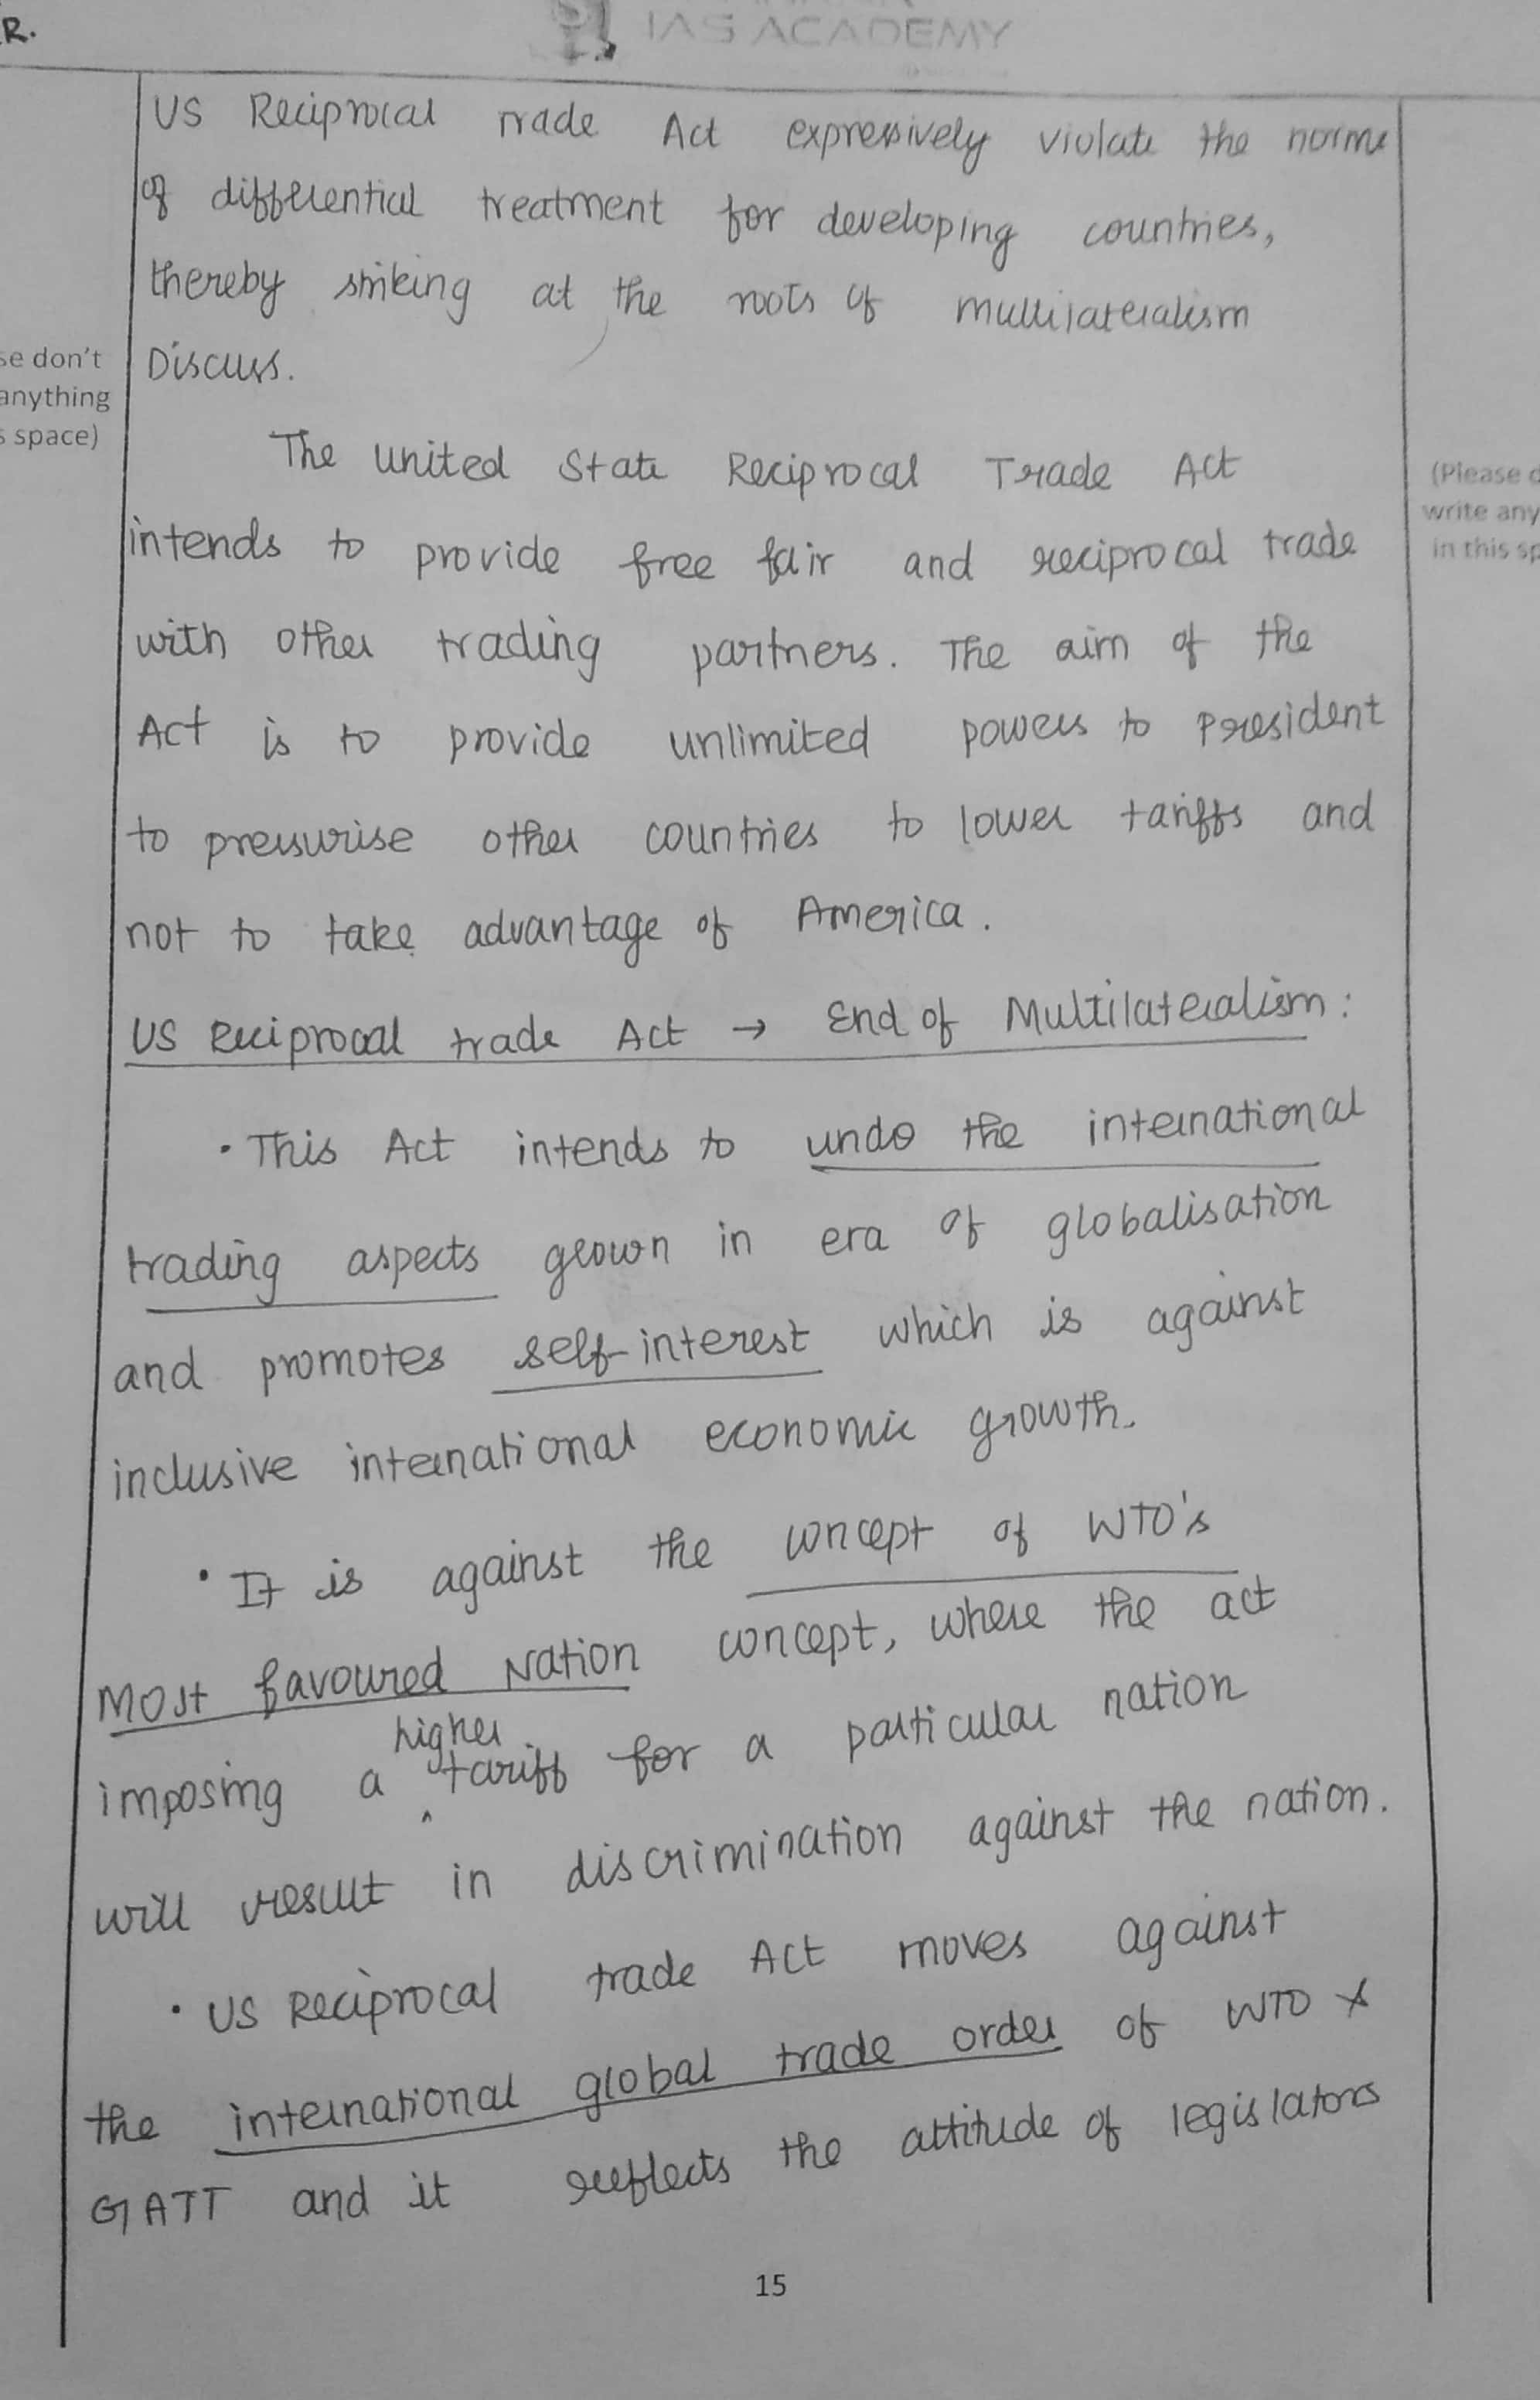 R.
IAS ACADEMY
US Reciprocal Trade Act expressively violate the norms
of differential treatment for developing countries,
thereby striking at the roots of multilateralism
Discuss.
se don't
anything
s space)
The United State Reciprocal Trade Act
intends to provide free fair and reciprocal trade
with other trading partners. The aim of the
Act is to provide unlimited powers to President
to pressurise other countries to lower tariffs and
not to take advantage of America.
(Please d
write any
in this sp
US Reciprocal trade Act → End of Multilateralism:
• This Act intends to undo the international
trading aspects grown in era of globalisation
and promotes self-interest which is against
inclusive international economic growth.
• It is against the concept of WTO's
Most favoured Nation concept, where the act
imposing a higher tariff for a particular nation
will result in discrimination against the nation.
• US Reciprocal trade Act moves against
the international global trade order of WTO &
GATT and it reflects the attitude of legislators
15